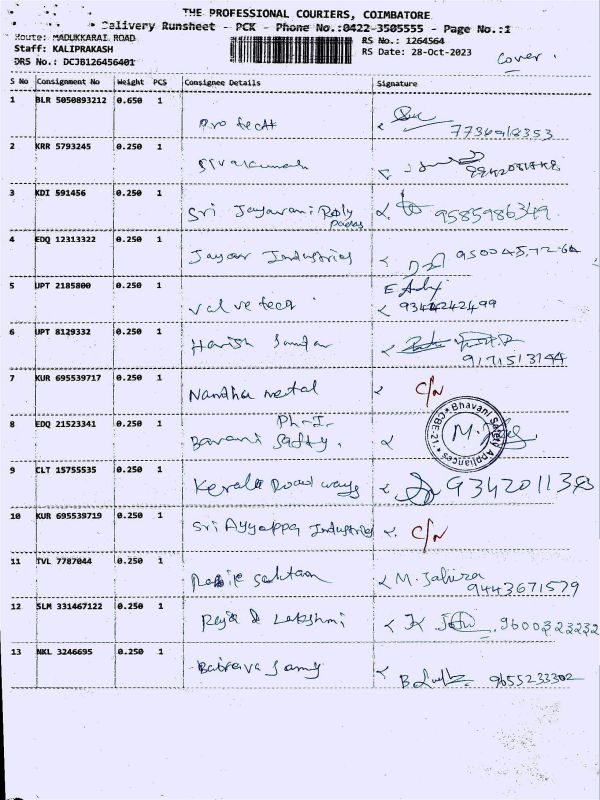 THE PROFESSIONAL COURIERS, COIMBATORE
Delivery Runsheet - PCK - Phone No.:0422-3505555 - Page No.:1
Route: MADUKKARAI ROAD
Staff: KALIPRAKASH
DRS No.: DCJB126456401
RS No.: 1264564
RS Date: 28-Oct-2023
Cover.
S No Consignment No Weight PCS Consignee Details Signature
1 BLR 5050893212 0.650 1 Pro tech
2 KRR 5793245 0.250 1 Sivakumar
3 KDI 591456 0.250 1 Sri Jayavani Poly 9585986349
4 EDQ 12313322 0.250 1 Jayar Industries
5 UPT 2185800 0.250 1 Valve tech 9344242499
6 UPT 8129332 0.250 1 Harish Sundar
9171513144
7 KUR 695539717 0.250 1 Nandha metal C/N
Ph-I-
8 EDQ 21523341 0.250 1 Bavani Safty.
Bhavani Safety Appliances CBE-21
9 CLT 15755535 0.250 1 Kerala Road ways
10 KUR 695539719 0.250 1 Sri Ayyappa Industries C/N
11 TVL 7787044 0.250 1 M. Jahira
9443671579
12 SLM 331467122 0.250 1 Raja & Lakshmi 9600323232
13 NKL 3246695 0.250 1 Bairava Samy 9655233302